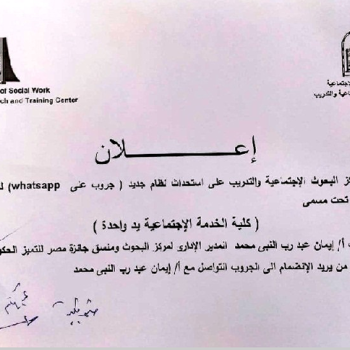 of Social Work
ch and Training Center
جتماعية
عية والتدريب
إعــــــلان
ز البحوث الإجتماعية والتدريب على استحداث نظام جديد ( جروب على whatsapp) ل
تحت مسمى
( كلية الخدمة الإجتماعية يد واحدة )
أ/ إيمان عبد رب النبى محمد المدير الإدارى لمركز البحوث ومنسق جائزة مصر للتميز الحكو
من يريد الإنضمام الى الجروب التواصل مع أ/ إيمان عبد رب النبى محمد